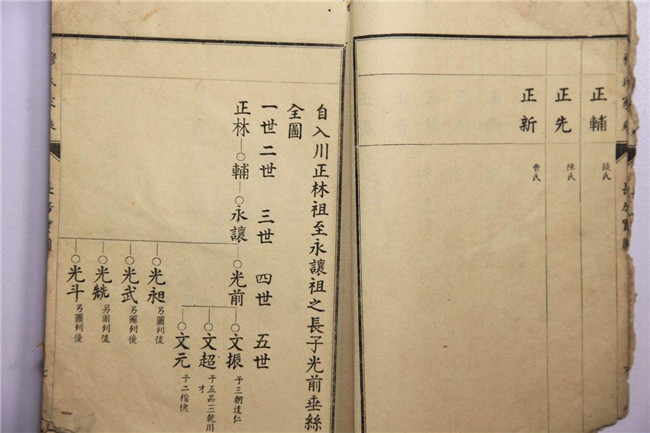 正輔 饒氏
正先 陳氏
正新 曹氏
自入川正林祖至永讓祖之長子光前垂絲
全圖
一世 二世 三世 四世 五世
正林 輔 永讓 光前 文振 子三朝達仁
文超 子五品三乾川才
文元 子二楷槐
光昶 另圖列後
光武 另圖列後
光毓 另圖列後
光斗 另圖列後
一